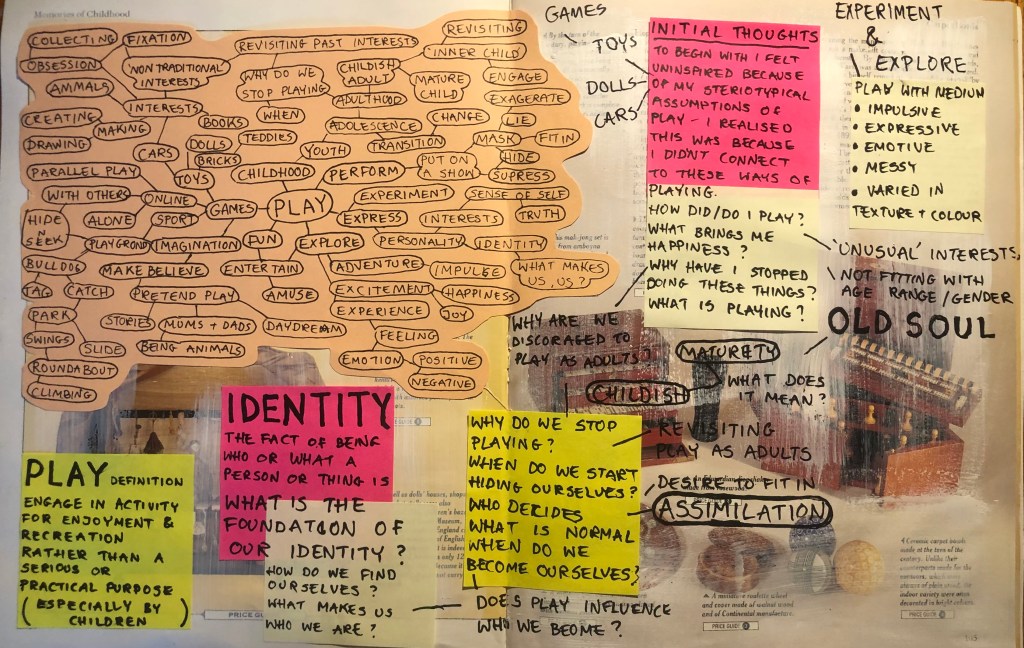 Memories of Childhood
COLLECTING
FIXATION
OBSESSION
'NON TRADITIONAL'
INTERESTS
ANIMALS
INTERESTS
CREATING
MAKING
DRAWING
PARALLEL PLAY
WITH OTHERS
ONLINE
HIDE
N
SEEK
ALONE
SPORT
PLAYGROND
BULLDOG
TAG
CATCH
PARK
SWINGS
SLIDE
ROUNDABOUT
CLIMBING
REVISITING PAST INTERESTS
WHY DO WE
STOP PLAYING
WHEN
BOOKS
TEDDIES
DOLLS
BRICKS
CARS
TOYS
GAMES
IMAGINATION
MAKE BELIEVE
PRETEND PLAY
STORIES
MUMS + DADS
BEING ANIMALS
REVISITING
'INNER CHILD'
CHILDISH
ADULT
MATURE
CHILD
ADULTHOOD
ADOLESCENCE
YOUTH
TRANSITION
CHANGE
CHILDHOOD
PERFORM
PUT ON
A SHOW
ENGAGE
EXAGERATE
LIE
MASK
FIT IN
HIDE
SUPRESS
PLAY
EXPERIMENT
SENSE OF SELF
EXPRESS
INTERESTS
TRUTH
FUN
EXPLORE
PERSONALITY
IDENTITY
ENTERTAIN
ADVENTURE
IMPULSE
WHAT MAKES
US, US?
AMUSE
EXCITEMENT
HAPPINESS
EXPERIENCE
JOY
DAYDREAM
FEELING
EMOTION
POSITIVE
NEGATIVE
GAMES
TOYS
DOLLS
CARS
INITIAL THOUGHTS
TO BEGIN WITH I FELT
UNINSPIRED BECAUSE
OF MY STERIOTYPICAL
ASSUMPTIONS OF
PLAY - I REALISED
THIS WAS BECAUSE
I DIDN'T CONNECT
TO THESE WAYS OF
PLAYING.
HOW DID/DO I PLAY?
WHAT BRINGS ME
HAPPINESS?
WHY HAVE I STOPPED
DOING THESE THINGS?
WHAT IS PLAYING?
EXPERIMENT
&
EXPLORE
PLAY WITH MEDIUM
• IMPULSIVE
• EXPRESSIVE
• EMOTIVE
• MESSY
• VARIED IN
TEXTURE + COLOUR
'UNUSUAL' INTERESTS,
NOT FITTING WITH
AGE RANGE/GENDER
OLD SOUL
WHY ARE WE
DISCORAGED TO
PLAY AS ADULTS?
MATURETY
CHILDISH
WHAT DOES
IT MEAN?
REVISITING
PLAY AS ADULTS
DESIRE TO FIT IN
ASSIMILATION
WHY DO WE STOP
PLAYING?
WHEN DO WE START
HIDING OURSELVES?
WHO DECIDES
WHAT IS NORMAL
WHEN DO WE
BECOME OURSELVES?
DOES PLAY INFLUENCE
WHO WE BEOME?
IDENTITY
THE FACT OF BEING
WHO OR WHAT A
PERSON OR THING IS
WHAT IS THE
FOUNDATION OF
OUR IDENTITY?
HOW DO WE FIND
OURSELVES?
WHAT MAKES US
WHO WE ARE?
PLAY DEFINITION
ENGAGE IN ACTIVITY
FOR ENJOYMENT &
RECREATION
RATHER THAN A
SERIOUS OR
PRACTICAL PURPOSE
(ESPECIALLY BY
CHILDREN)
PRICE GUIDE
A miniature roulette wheel
and cover made of walnut wood
and of Continental manufacture.
PRICE GUIDE
Ceramic carpet bowls
made at the turn of the
century. Unlike their
PRICE GUIDE